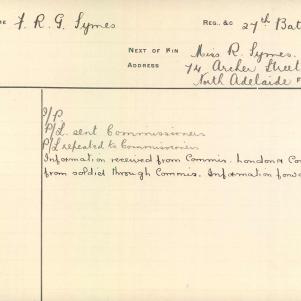 ME F. R. G. Symes REG. &C 27th Bat
NEXT OF KIN Miss R. Symes.
ADDRESS 74 Archer Street
North Adelaide F
C/P
P/L. sent Commissioners
P/L repeated to Commissioner
Information received from Commis. London & Co
from soldier through Commis. Information forw